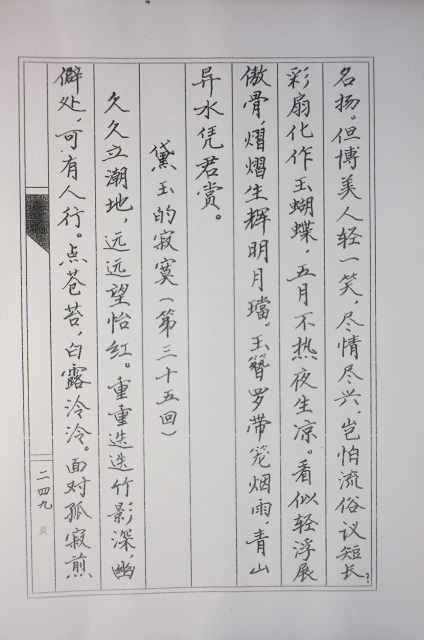 名扬。但博美人轻一笑，尽情尽兴，岂怕流俗议短长？
彩扇化作玉蝴蝶，五月不热夜生凉。看似轻浮展
傲骨，熠熠生辉明月璫。玉簪罗带笼烟雨，青山
异水凭君赏。
黛玉的寂寞（第三十五回）
久久立潮地，远远望怡红。重重迭迭竹影深，幽
僻处，可有人行。点苍苔，白露泠泠。面对孤寂煎
二四九 页